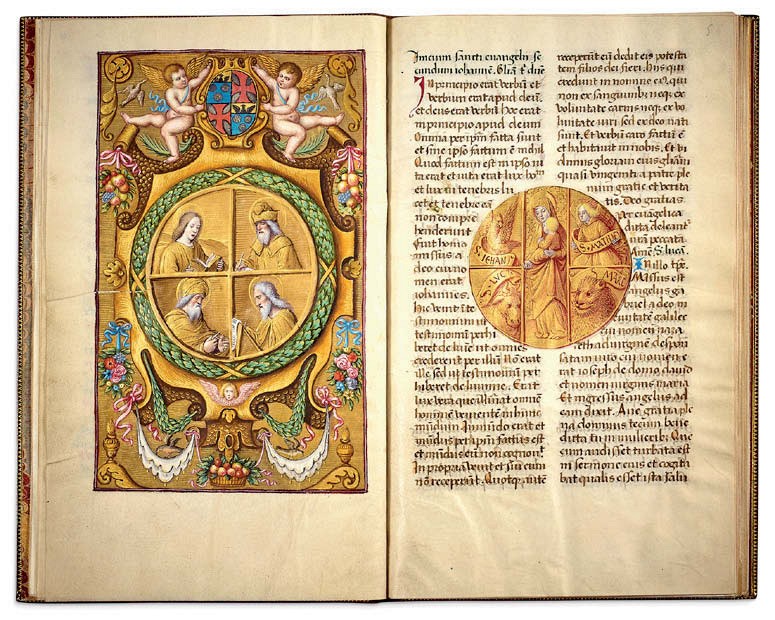 Inicium sancti evangelii se
cundum iohannē. Gliā t̄ dn̄e
In principio erat verbū et
verbum erat apud deū.
et deus erat verbū hoc erat
in principio apud deum
Omnia per ipm̄ facta sunt
et sine ipso factum ē nichil
Quod factum est in ipso ui
ta erat et uita erat lux hom̄
et lux in tenebris lu
cet et tenebre eā
non compre
henderunt
Fuit homo
missus a
deo cui no
men erat
iohannes.
Hic venit in te
stimonium ut
testimoniū perhi
beret de lumīe ut omnes
crederent per illum Nō erat
ille sed ut testimoniū per
hiberet de lumine. Erat
lux vera que illuminat omnem
hominem venientē in hūc
mundum In mundo erat et
mūdus per ipm̄ factus est
et mūdus eū non cognouit
In propria venit et sui eum
nō receperunt. Quotquot autē
S. IEHAN
S. MATHIE
S. LVC
S. MARC
5
receperunt eū dedit eis potesta
tem filios dei fieri. his qui
credunt in nomine eius. qui
non ex sanguinib; neq; ex
voluntate carnis neq; ex vo
luntate viri sed ex deo nati
sunt. Et verbū caro factū ē
et habitavit in nobis. Et vi
dimus gloriam eius gliam
quasi vnigeniti a patre ple
num gratie et verita
tis. Deo gratias.
Per evāgelica
dicta deleant
urn peccata.
Amē. S. lucā.
In illo tp̄e.
Missus est
angelus ga
briel a deo in
civitatem galilee
cui nomen naza
reth ad virginem despon
satam viro cui nomen e
rat ioseph de domo david
et nomen virginis maria
Et ingressus angelus ad
eam dixit. Ave gratia ple
na dominus tecum bene
dicta tu in mulierib; Que
cum audisset turbata est
in sermone eius et cogita
bat qualis esset ista salu